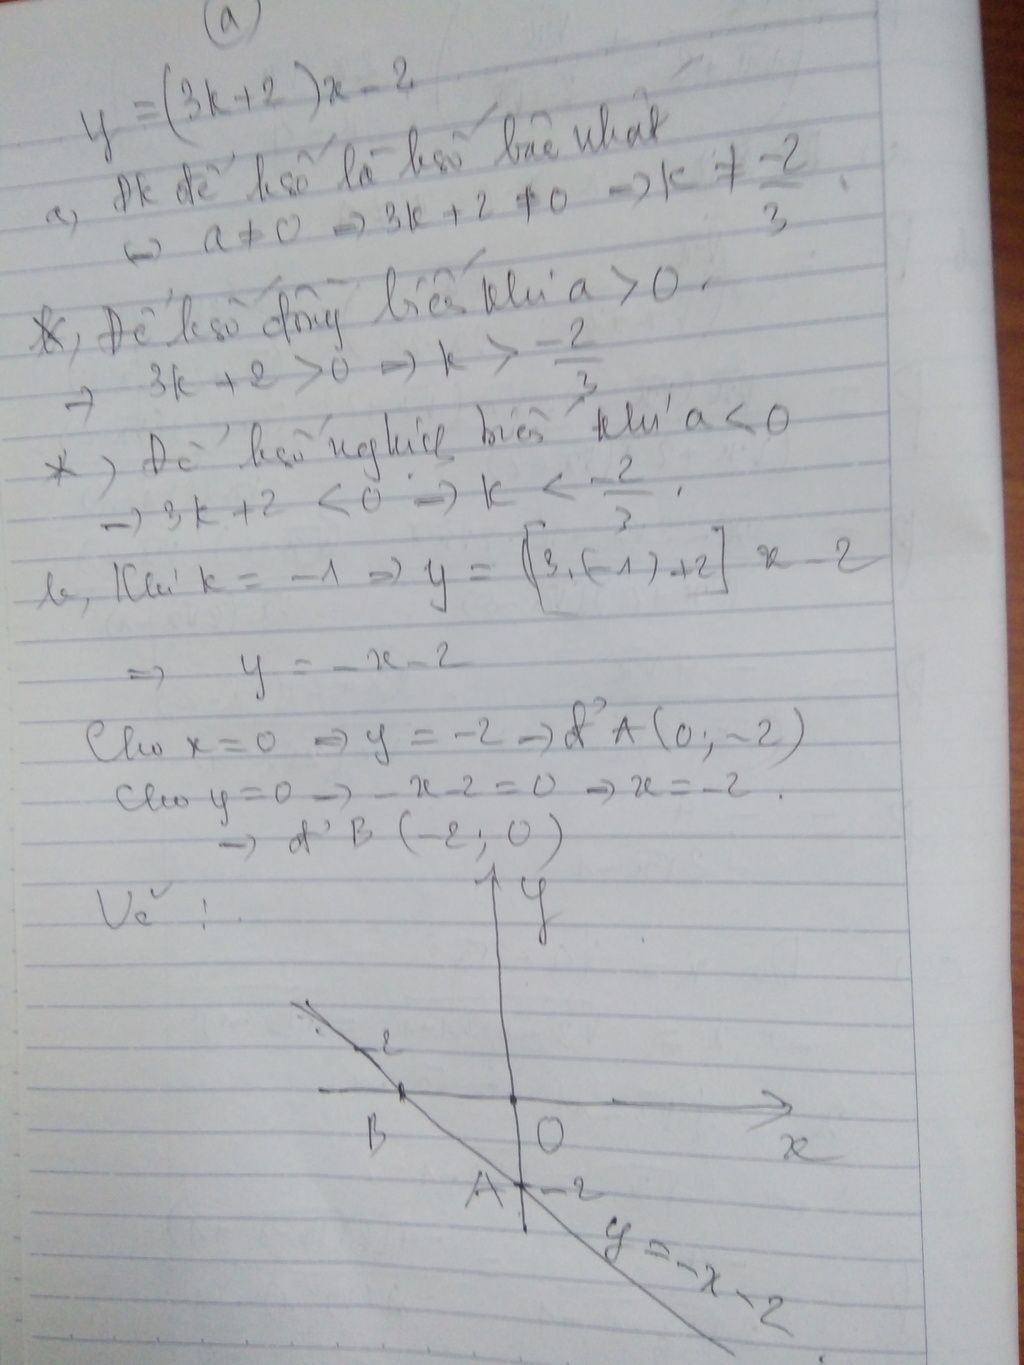 (a)
y = (3k+2)x - 2
a, Đk để hsố là hsố bậc nhất
⇔ a ≠ 0 ⇒ 3k + 2 ≠ 0 ⇒ k ≠ -2/3.
*, Để hsố đồng biến khi a > 0.
→ 3k + 2 > 0 ⇒ k > -2/3
*, Để hsố nghịch biến khi a < 0
→ 3k + 2 < 0 → k < -2/3.
b, Khi k = -1 ⇒ y = [3.(-1)+2] x - 2
⇒ y = -x - 2
Cho x = 0 ⇒ y = -2 → đ' A (0; -2)
Cho y = 0 → -x - 2 = 0 ⇒ x = -2.
→ đ' B (-2; 0)
Vẽ :
y
-2
B
O
x
A
-2
y = -x - 2